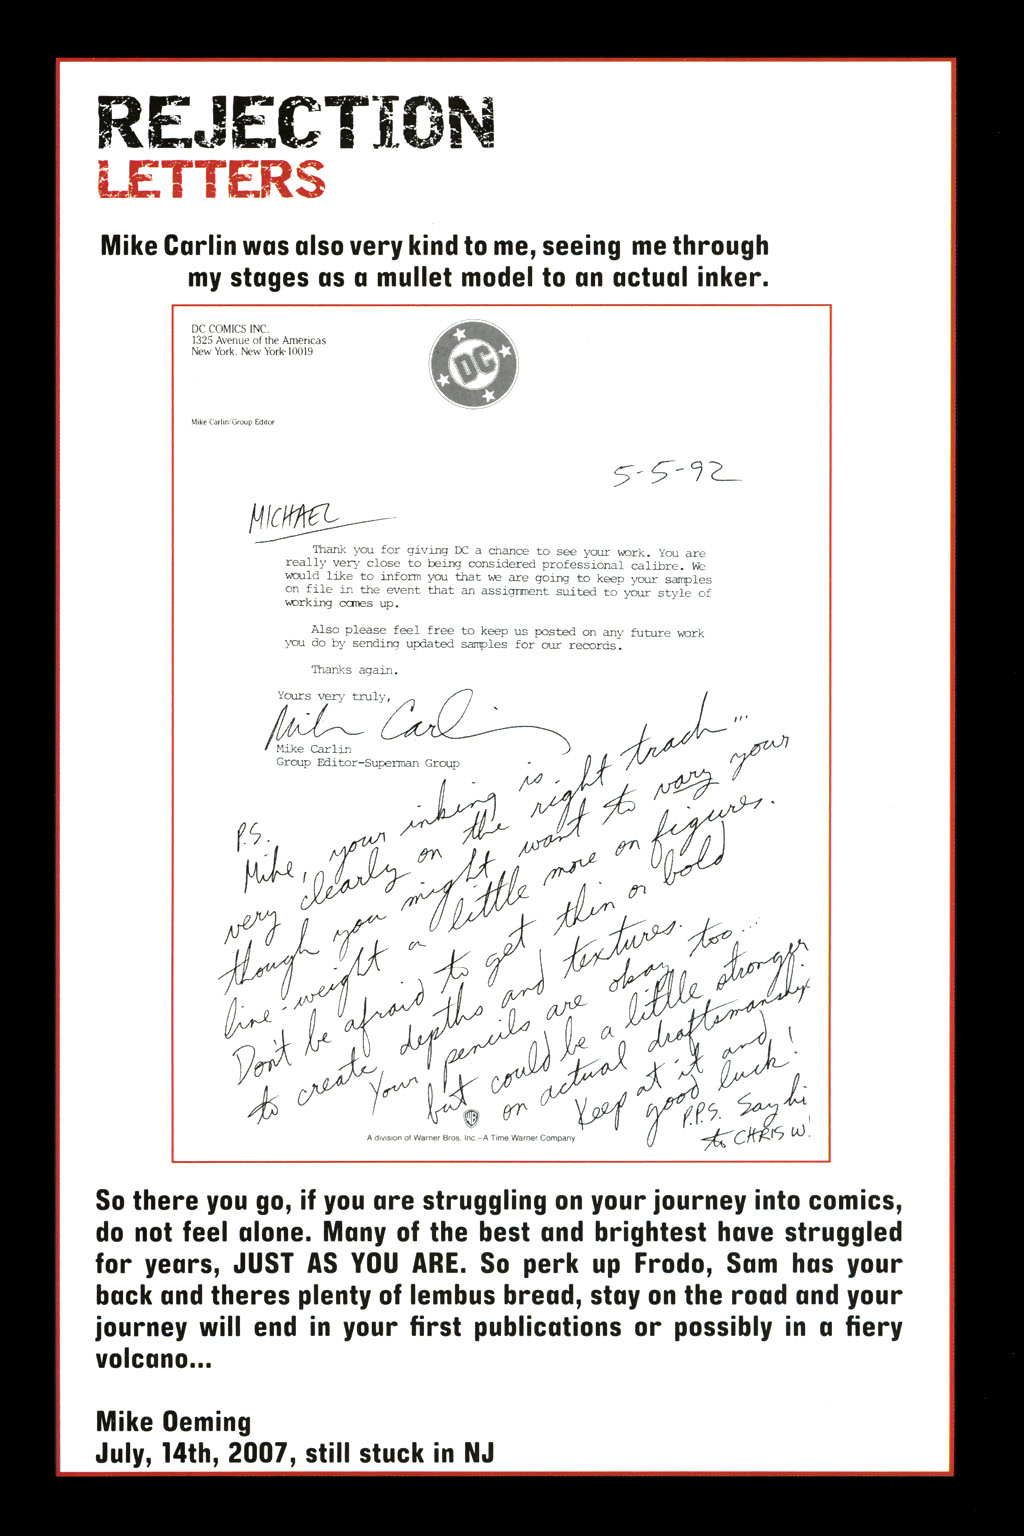 REJECTION
LETTERS
Mike Carlin was also very kind to me, seeing me through
my stages as a mullet model to an actual inker.
DC COMICS INC.
1325 Avenue of the Americas
New York, New York 10019
DC
Mike Carlin/Group Editor
5-5-92
MICHAEL
Thank you for giving DC a chance to see your work. You are
really very close to being considered professional calibre. We
would like to inform you that we are going to keep your samples
on file in the event that an assignment suited to your style of
working comes up.
Also please feel free to keep us posted on any future work
you do by sending updated samples for our records.
Thanks again.
Yours very truly,
Mike Carlin
Mike Carlin
Group Editor-Superman Group
P.S.
Mike, your inking is
very clearly on the right track...
though you might want to vary your
line-weight a little more on figures.
Don't be afraid to get thin or bold
to create depths and textures.
Your pencils are okay, too...
but could be a little stronger
on actual draftsmanship.
Keep at it and
good luck!
P.P.S. Say hi
to CHRIS W!
WB
A division of Warner Bros. Inc.–A Time Warner Company
So there you go, if you are struggling on your journey into comics,
do not feel alone. Many of the best and brightest have struggled
for years, JUST AS YOU ARE. So perk up Frodo, Sam has your
back and theres plenty of lembus bread, stay on the road and your
journey will end in your first publications or possibly in a fiery
volcano...
Mike Oeming
July, 14th, 2007, still stuck in NJ